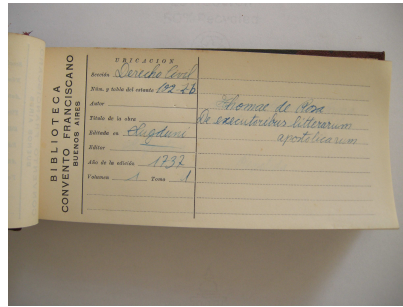 BIBLIOTECA
CONVENTO FRANCISCANO
BUENOS AIRES
UBICACION
Sección Derecho Civil
Núm. y tabla del estante 102-Lb
Autor
Título de la obra
Editada en Lugduni
Editor
Año de la edición 1737
Volumen 1 Tomo 1
Thomae de Rosa
De executoribus litterarum
apostolicarum